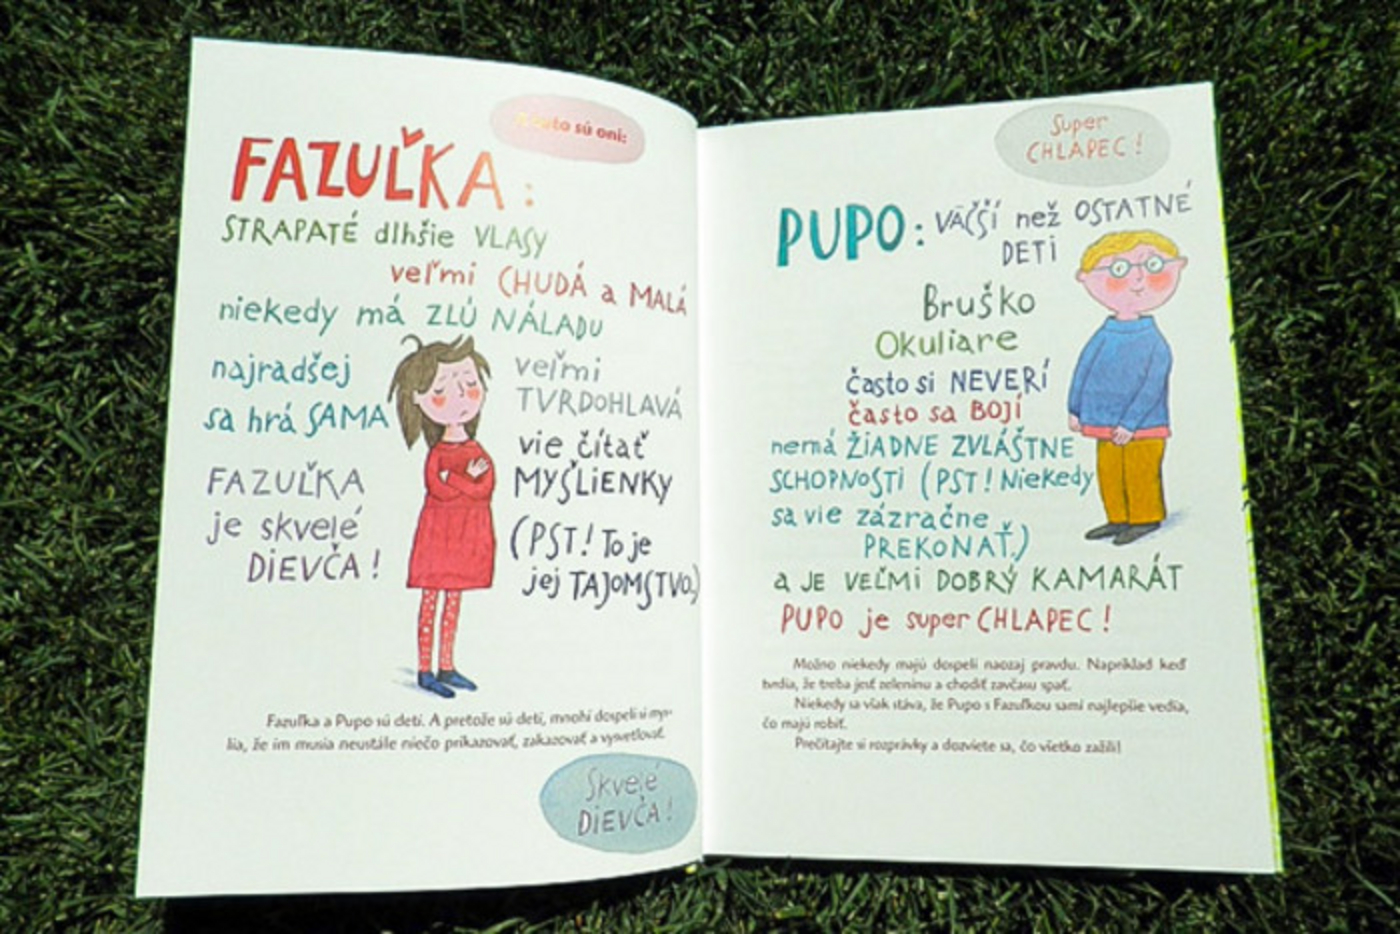 to sú oni:
FAZUĽKA:
STRAPATÉ dlhšie VLASY
veľmi CHUDÁ a MALÁ
niekedy má ZLÚ NÁLADU
najradšej
sa hrá SAMA
FAZUĽKA
je skvelé
DIEVČA!
veľmi
TVRDOHLAVÁ
vie čítať
MYŠLIENKY
(PST! To je
jej TAJOMSTVO.)
Fazuľka a Pupo sú deti. A pretože sú deti, mnohí dospelí si mys-
lia, že im musia neustále niečo prikazovať, zakazovať a vysvetľovať.
Skvelé
DIEVČA!
Super
CHLAPEC!
PUPO: VÄČŠÍ než OSTATNÉ
DETI
Bruško
Okuliare
často si NEVERÍ
často sa BOJÍ
nemá ŽIADNE ZVLÁŠTNE
SCHOPNOSTI (PST! Niekedy
sa vie zázračne
PREKONAŤ.)
a JE VEĽMI DOBRÝ KAMARÁT
PUPO je super CHLAPEC!
Možno niekedy majú dospelí naozaj pravdu. Napríklad keď
tvrdia, že treba jesť zeleninu a chodiť zavčasu spať.
Niekedy sa však stáva, že Pupo s Fazuľkou sami najlepšie vedia,
čo majú robiť.
Prečítajte si rozprávky a dozviete sa, čo všetko zažili!